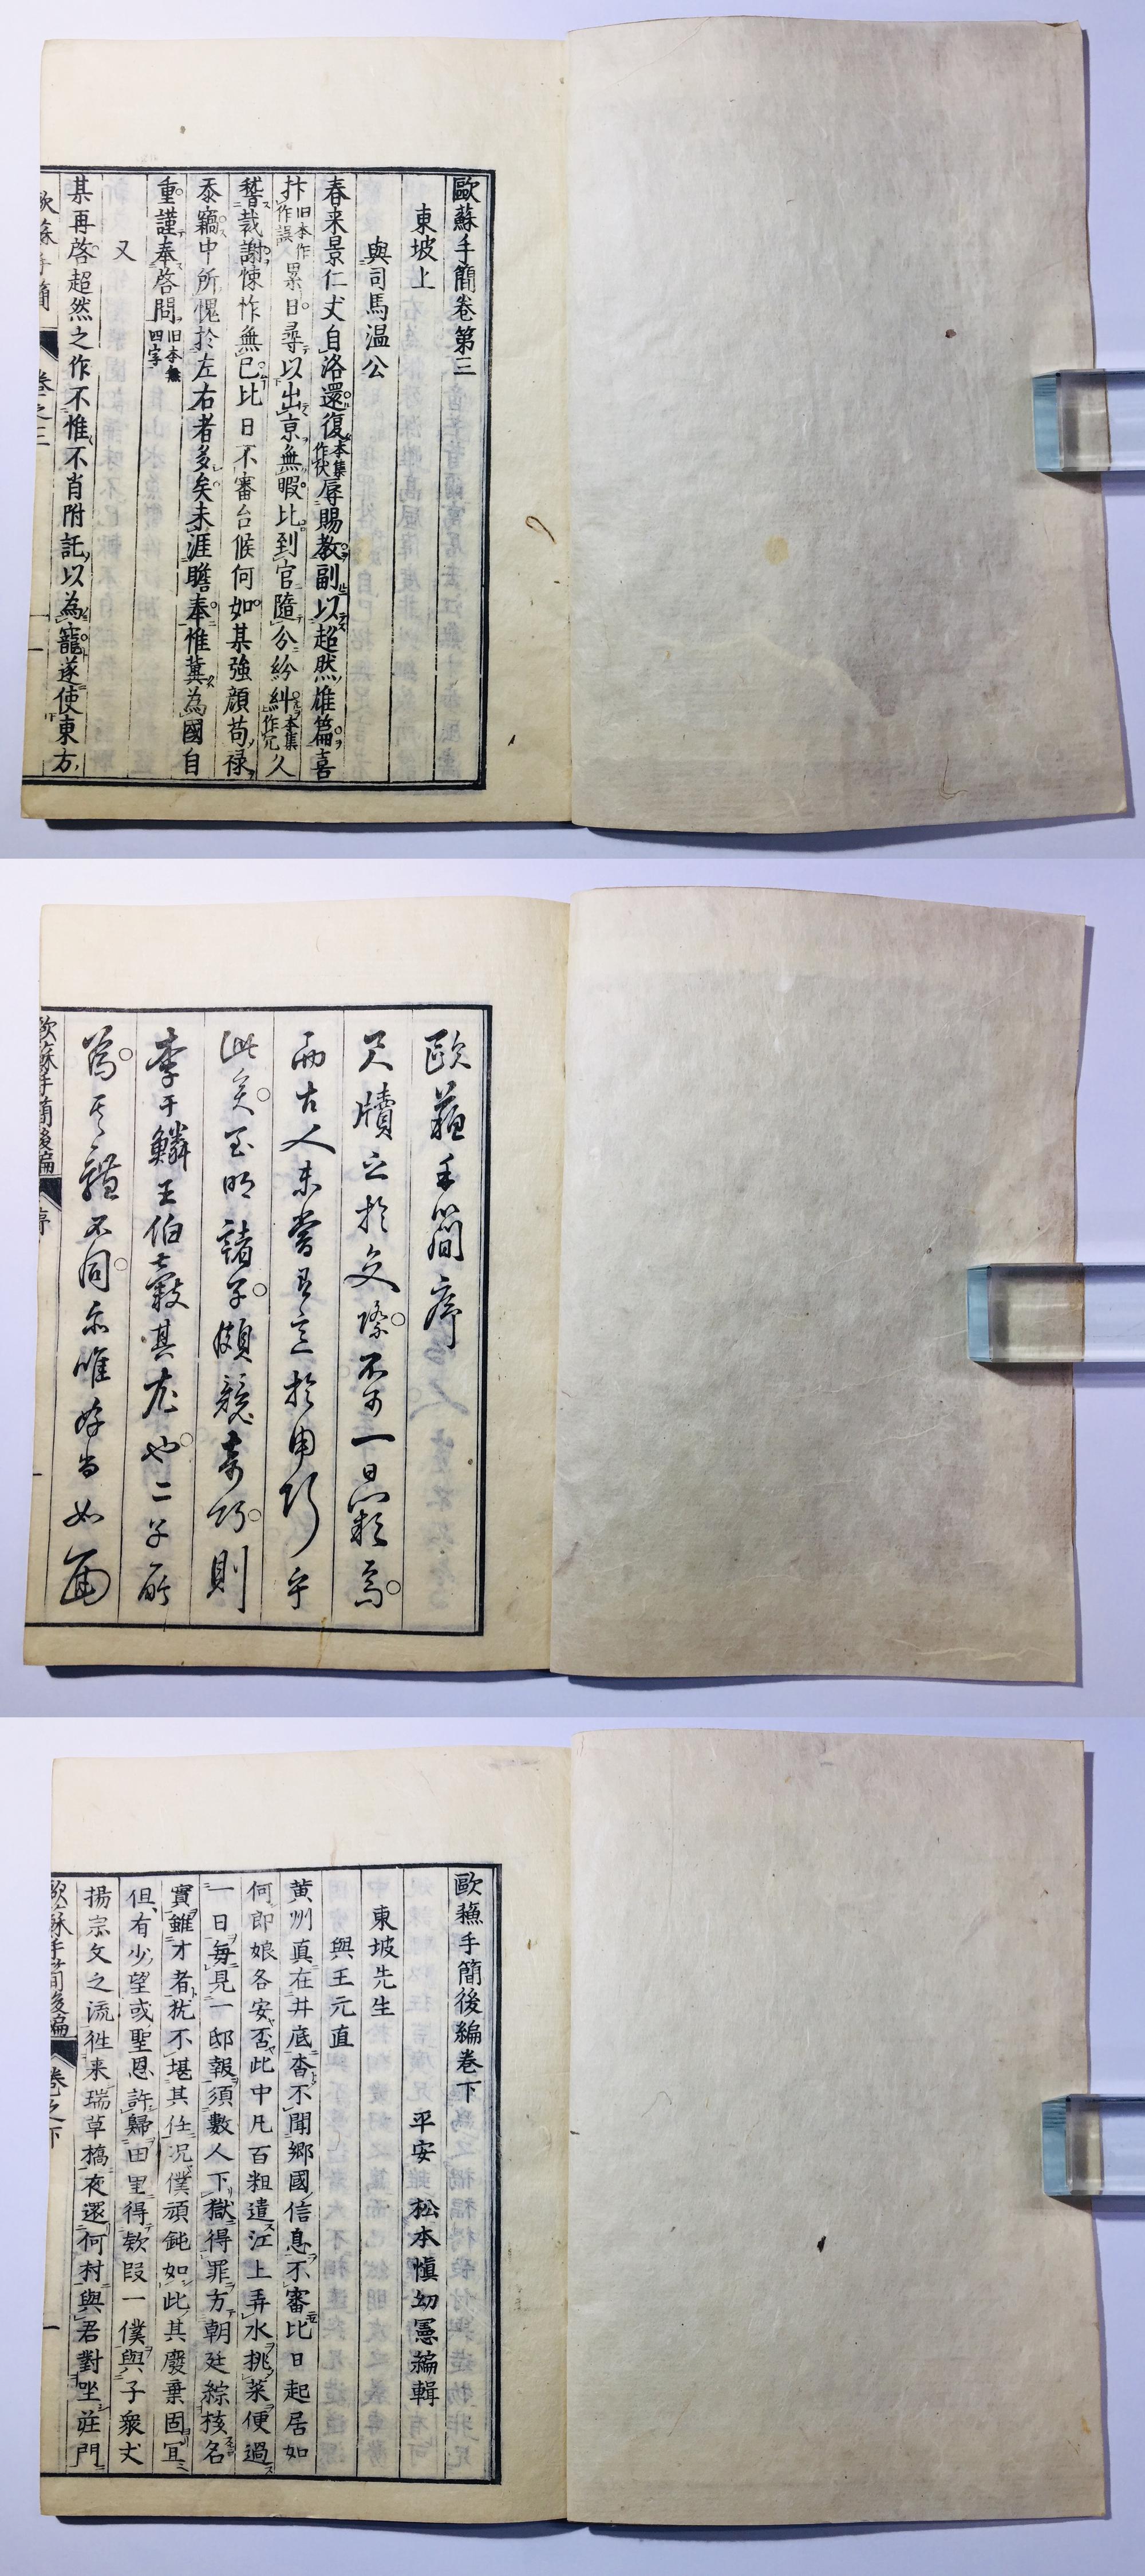 歐蘇手簡卷第三
東坡上
與司馬温公
春来景仁丈自洛還復本集作伏辱賜教副以超然雄篇喜
抃旧本作作誤累日尋以出京無暇比到官隨分紛糾本集作冗久
稽裁謝悚怍無已比日不審台候何如某強顔苟禄
忝竊中所愧於左右者多矣未涯瞻奉惟冀為國自
重謹奉啓問旧本無四字
又
某再啓超然之作不惟不肖附託以為寵遂使東方
歐蘇手簡 卷之三 一
歐蘓手簡序
尺牘之於文際不可一日闕焉
而古人未嘗有意於用巧乎
此矣至明諸子頗競奇巧則
李于鱗王伯穀其尤也二子所
為其體不同亦唯好尚如面
歐蘇手簡後編 序 一
歐蘓手簡後編卷下
平安 松本愼幼憲編輯
東坡先生
與王元直
黄州真在井底杳不聞郷國信息不審比日起居如
何郎娘各安否此中凡百粗遣江上弄水挑菜便過
一日毎見一邸報須數人下獄得罪方朝廷綜核名
實雖才者犹不堪其任况僕頑鈍如此其廢棄固冝
但有少望或聖恩許歸田里得欵段一僕與子衆丈
揚宗文之流徃来瑞草橋夜還何村與君對坐莊門
歐蘇手簡後編 卷之下 一